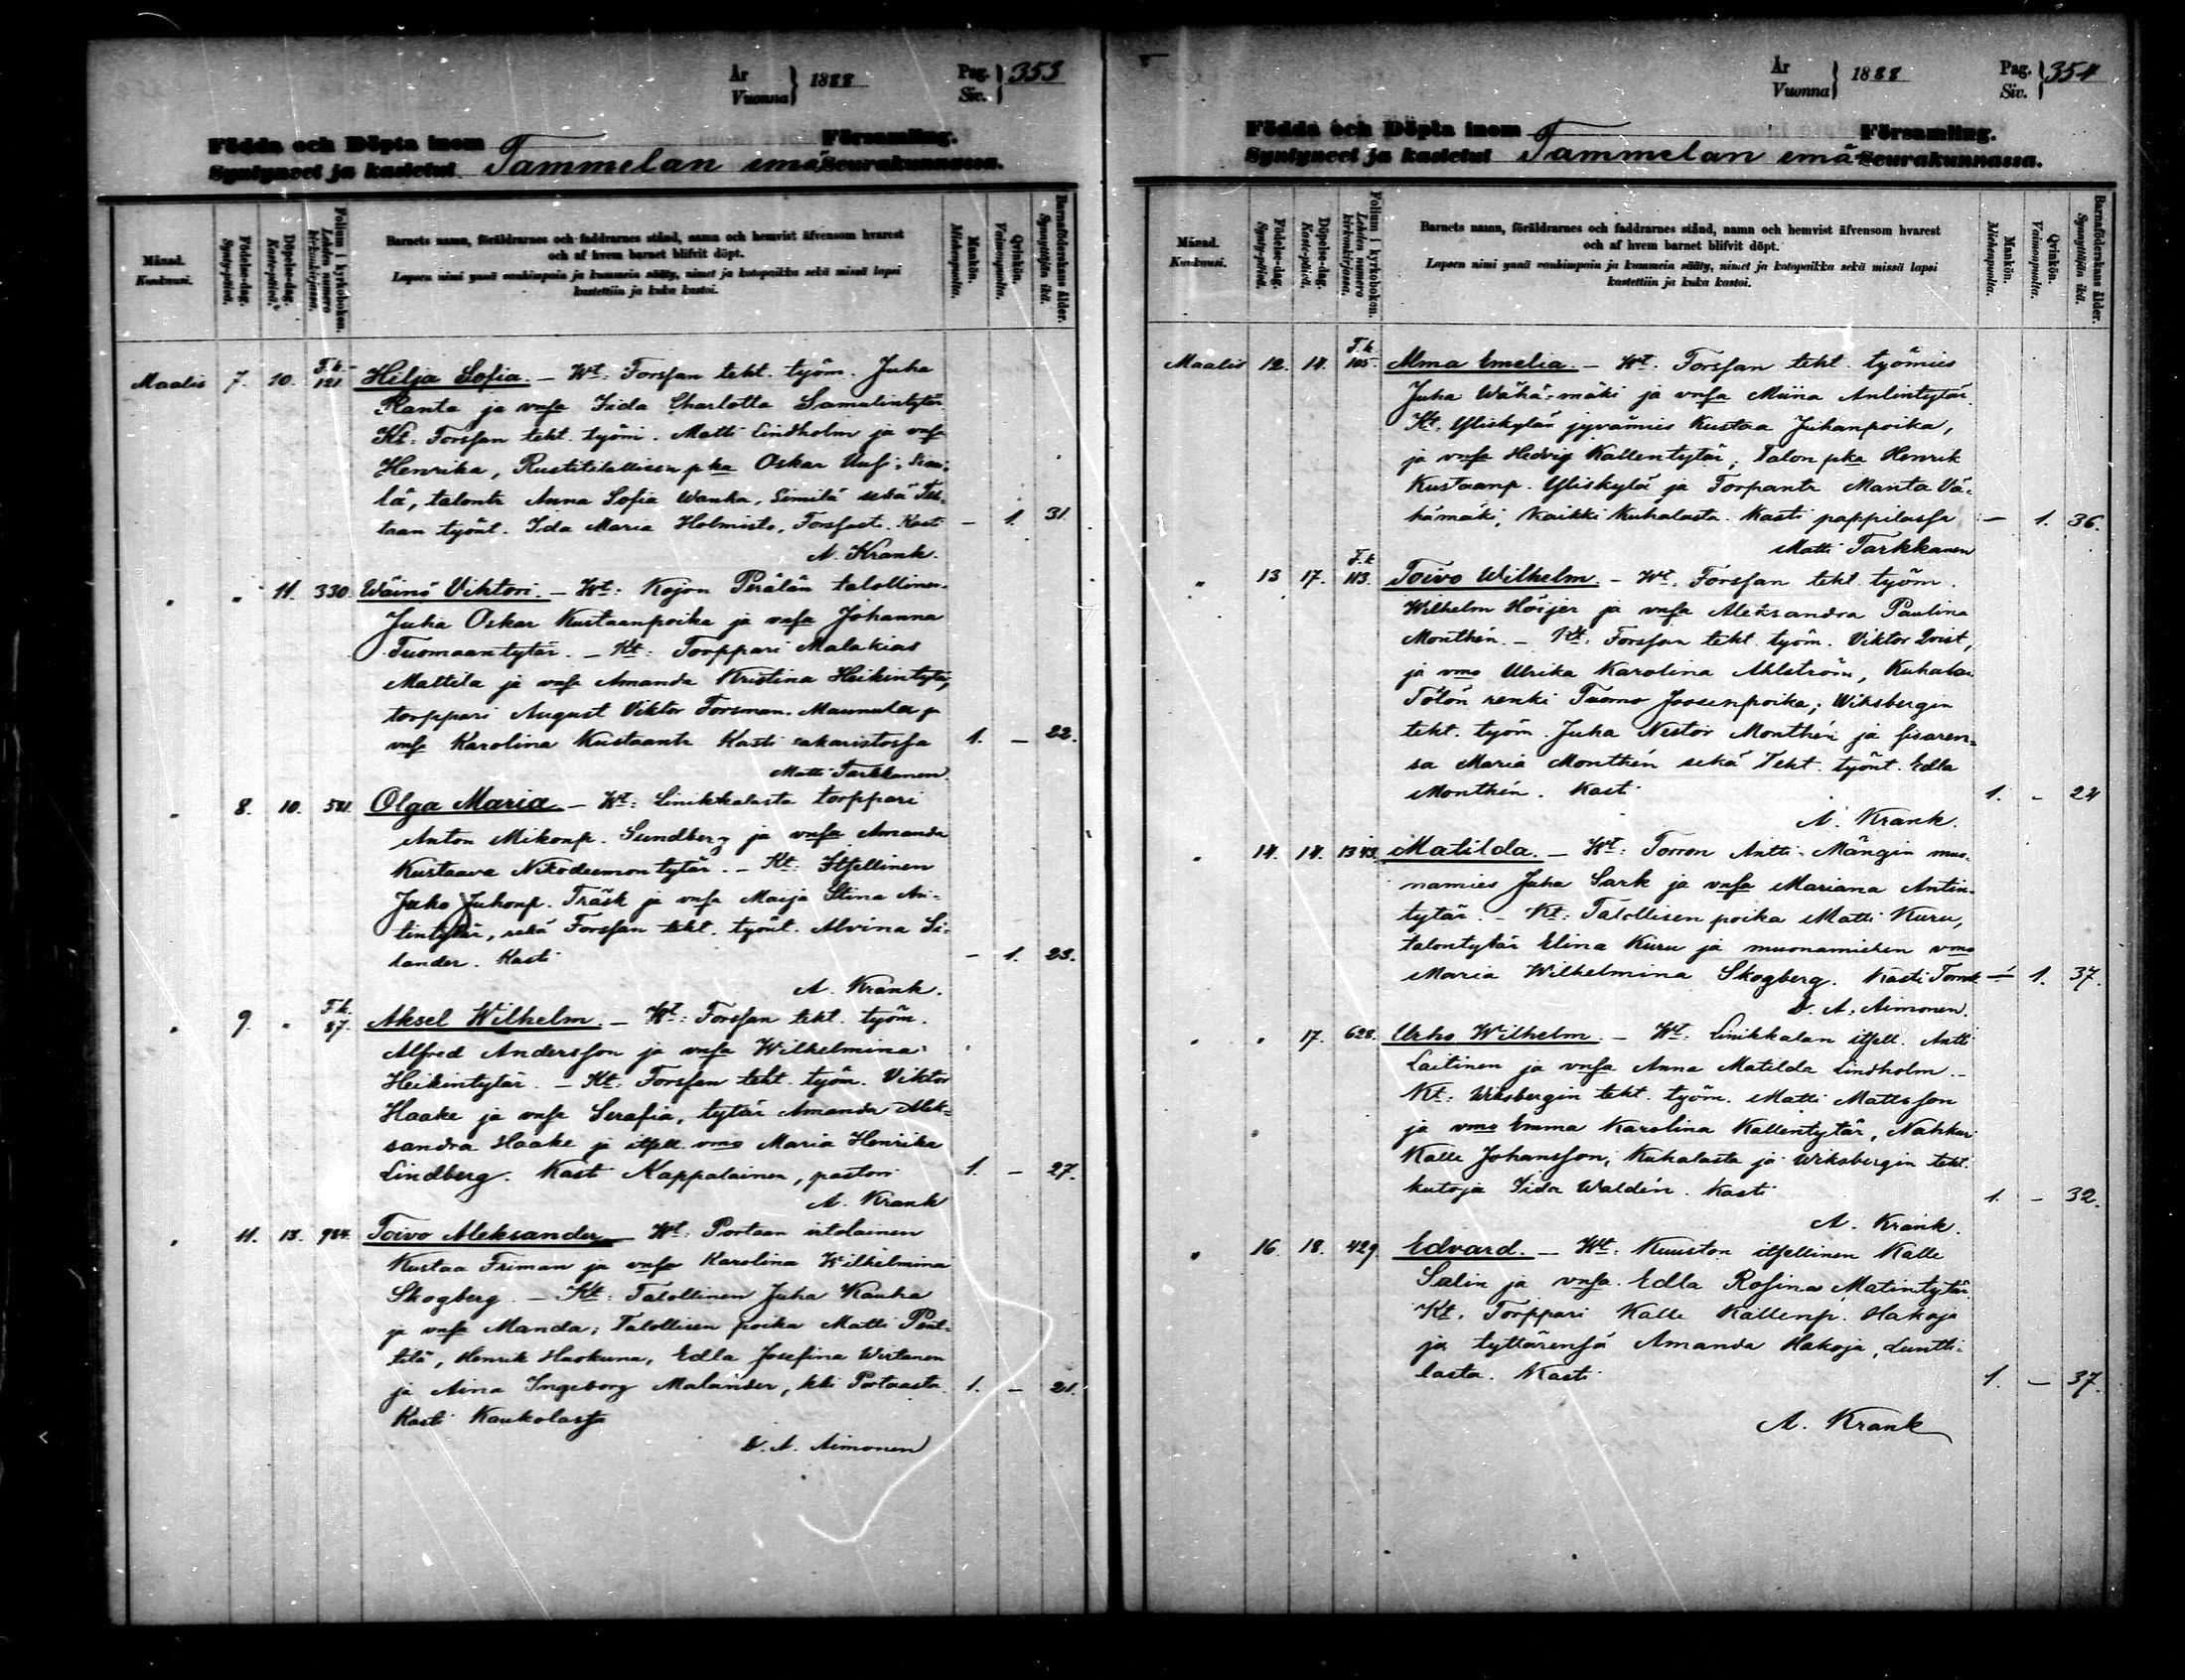 År
Vuonna } 1888 Pag.
Siv. } 353
Födda och Döpta inom Församling.
Syntyneet ja kastetut Tammelan emä Seurakunnassa.
Månad.
Kuukausi.
Födelse-dag.
Synty-päivä.
Döpelse-dag.
Kaste-päivä.
Folium i kyrkoboken.
Lehden numero
kirkonkirjassa.
Barnets namn, föräldrarnes och faddrarnes stånd, namn och hemvist äfvensom hvarest
och af hvem barnet blifvit döpt.
Lapsen nimi ynnä vanhimpain ja kummein sääty, nimet ja kotopaikka sekä missä lapsi
kastettiin ja kuka kastoi.
Mankön.
Miehenpuolta.
Qvinkön.
Vaimonpuolta.
Barnaföderskans ålder.
Synnyttäjän ikä.
Maalis 7. 10. F.k. 121. Hilja Sofia. – Wt: Forssan teht. työm. Juha
Ranta ja vnsa Iida Charlotta Samulintytär
Kt: Forssan teht. työm. Matti Lindholm ja vnsa
Henrika, Rustitilallisen pka Oskar Uusi-Simi-
lä, talontr Anna Sofia Wanha, Similä sekä Teh-
taan työnt. Ida Maria Holmisto, Forssast. Kasti – 1. 31.
A. Krank.
" " 11. 330. Wäinö Viktori. – Wt: Kojon Perälän talollinen
Juha Oskar Kustaanpoika ja vnsa Johanna
Tuomaantytär. – Kt: Torppari Malakias
Mattila ja vnsa Amanda Kristina Heikintytär,
torppari August Viktor Forsman. Maunula ja
vnsa Karolina Kustaantr Kasti sakaristossa 1. – 22.
Matti Tarkkanen
" 8. 10. 581. Olga Maria – Wt: Linikkalasta torppari
Anton Mikonp. Sundberg ja vnsa Amanda
Kustaava Nikodeemontytär. – Kt: Itsellinen
Jako Juhonp. Träsk ja vnsa Maija Stina An-
tintytär, sekä Forssan teht. työnt. Alvina Si-
lander. Kasti – 1. 23.
A. Krank.
" 9. " F.k. 87. Aksel Wilhelm. – Wt: Forssan teht. työm.
Alfred Andersson ja vnsa Wilhelmina
Heikintytär. – Kt: Forssan teht. työm. Viktor
Haake ja vnsa Serafia, tytär Amanda Alek-
sandra Haake ja itsell. vmo Maria Henrika
Lindberg. Kast Kappalainen, pastori 1. – 27.
A. Krank
" 11. 13. 984. Toivo Aleksander – Wt: Portaan irtolainen
Kustaa Friman ja vnsa Karolina Wilhelmina
Skogberg. – Kt: Talollinen Juha Kauha
ja vnsa Manda; Talollisen poika Matti Pent-
tilä, Henrik Haokuna, Edla Josefina Wirtanen
ja Aina Ingeborg Malander, kki Portaasta. 1. – 21.
Kasti Kaukolassa
D. A. Aimonen
År
Vuonna } 1888 Pag.
Siv. } 354
Födda och Döpta inom Församling.
Syntyneet ja kastetut Tammelan emä Seurakunnassa.
Månad.
Kuukausi.
Födelse-dag.
Synty-päivä.
Döpelse-dag.
Kaste-päivä.
Folium i kyrkoboken.
Lehden numero
kirkonkirjassa.
Barnets namn, föräldrarnes och faddrarnes stånd, namn och hemvist äfvensom hvarest
och af hvem barnet blifvit döpt.
Lapsen nimi ynnä vanhimpain ja kummein sääty, nimet ja kotopaikka sekä missä lapsi
kastettiin ja kuka kastoi.
Mankön.
Miehenpuolta.
Qvinkön.
Vaimonpuolta.
Barnaföderskans ålder.
Synnyttäjän ikä.
Maalis 12. 14. F.k. 105. Alma Emelia. – Wt: Forssan teht. työmies
Juha Wähä-mäki ja vnsa Miina Antintytär.
Kt. Yliskylän jyvämies Kustaa Juhanpoika,
ja vnsa Hedvig Kallentytär, Talon pka Henrik
Kustaanp. Yliskylä ja Torpantr Manta Vä-
hämäki, Kaikki Kuhalasta. Kasti pappilassa – 1. 36.
Matti Tarkkanen
" 13 17. F.k. 113. Toivo Wilhelm. – Wt. Forssan teht. työm.
Wilhelm Höijer ja vnsa Aleksandra Paulina
Monthén. – Kt. Forssan teht. työm. Viktor Qvist,
ja vmo Ulrika Karolina Ahlström, Kuhalan
Tölön renki Tuomo Joosenpoika; Wiksbergin
teht. työm. Juha Nestor Monthén ja sisaren-
sa Maria Monthén sekä Teht. työnt. Edla
Monthén. Kasti 1. – 24
A. Krank.
" 14. 14. 1343. Matilda. – Wt: Torron Antti-Mängin muo-
namies Juha Sark ja vnsa Mariana Antin-
tytär. – Kt: Talollisen poika Matti Kuru,
talontytär Elina Kuru ja muonamiehen vmo
Maria Wilhelmina Skogberg. Kasti – 1. 37.
D. A. Aimonen.
" " 17. 628. Urho Wilhelm. – Wt: Linikkalan itsell. Antti
Laitinen ja vnsa Anna Matilda Lindholm. –
Kt: Wiksbergin teht. työm. Matti Mattsson
ja vmo Emma Karolina Kallentytär, Nahkuri
Kalle Johansson, Kuhalasta ja Wiksbergin teht.
kutoja Iida Waldén. Kasti 1. – 32.
A. Krank.
" 16. 18. 429. Edvard. – Wt: Kuuston itsellinen Kalle
Salin ja vnsa Edla Rosina Matintytär.
Kt. Torppari Kalle Kallenp. Hakoja
ja tyttärensä Amanda Hakoja, Luntti-
lasta. Kasti 1. – 37.
A. Krank